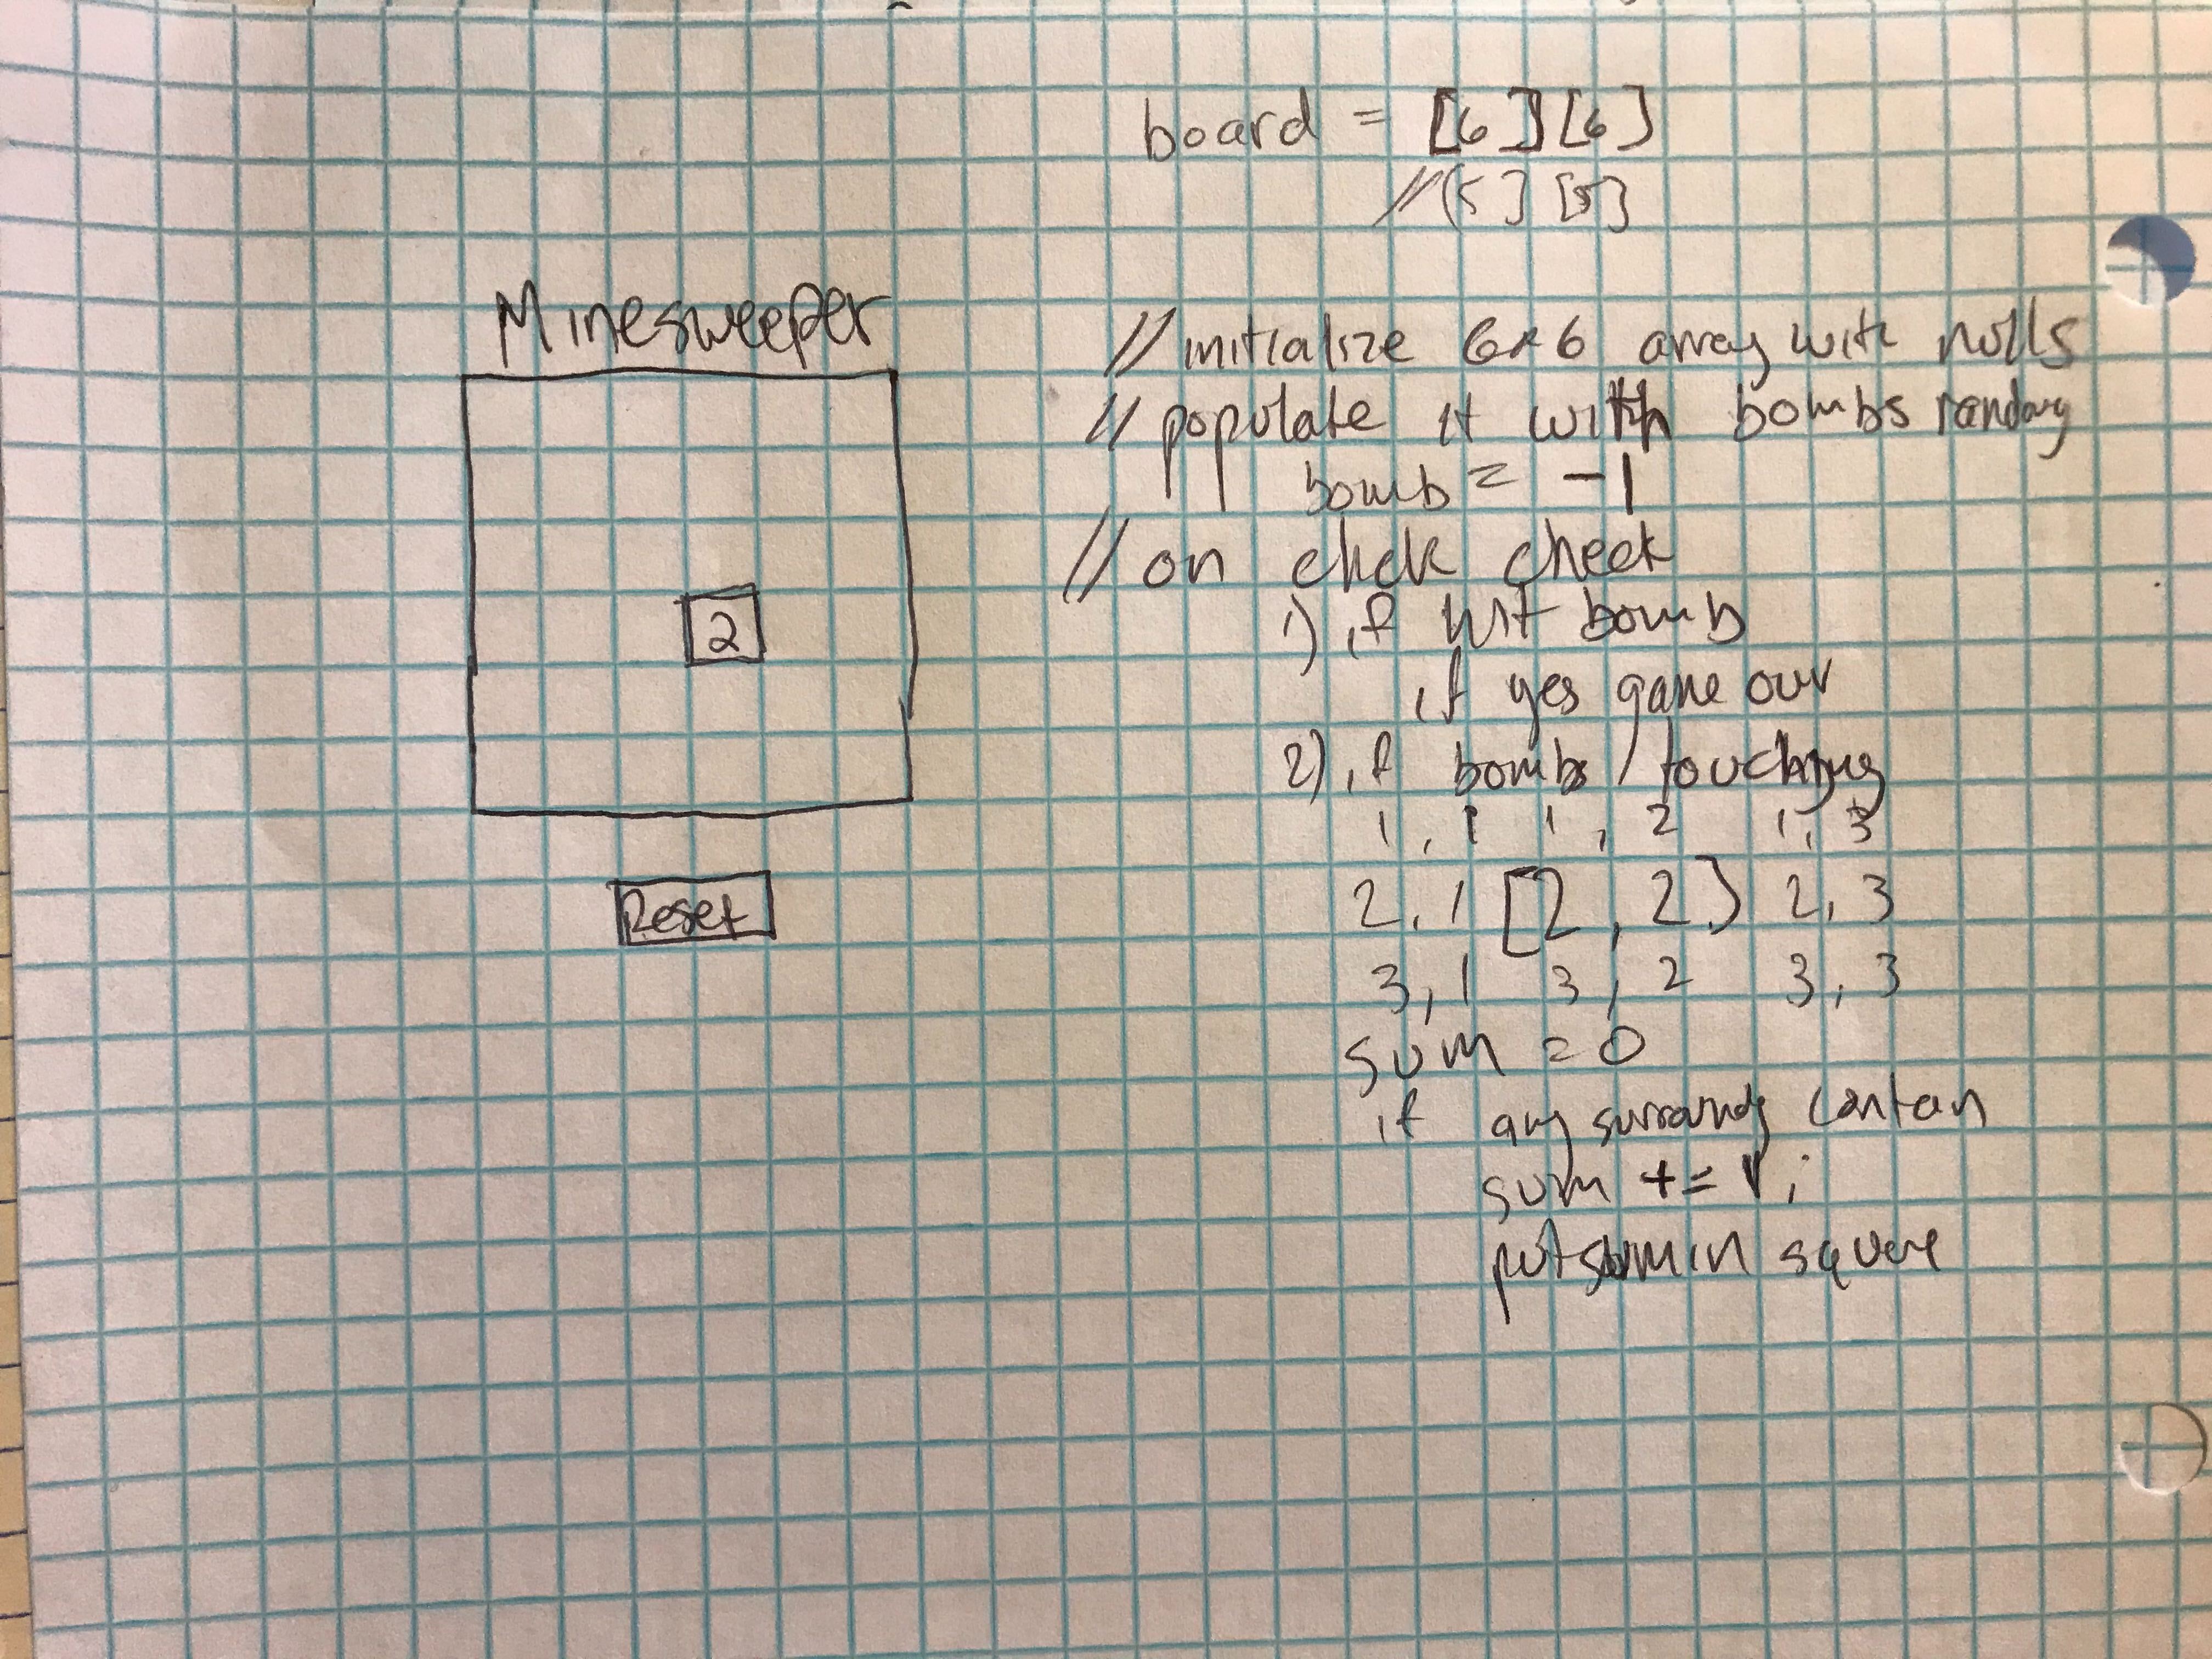 board = [6][6]
//[5][5]
Minesweeper
2
Reset
// initialize 6x6 array with nulls
// populate it with bombs
bomb = -1
// on click check
1) if hit bomb
if yes game over
2) if bombs touching
1,1 1,2 1,3
2,1 [2,2] 2,3
3,1 3,2 3,3
sum = 0
if any contain
sum += 1;
put sum in square